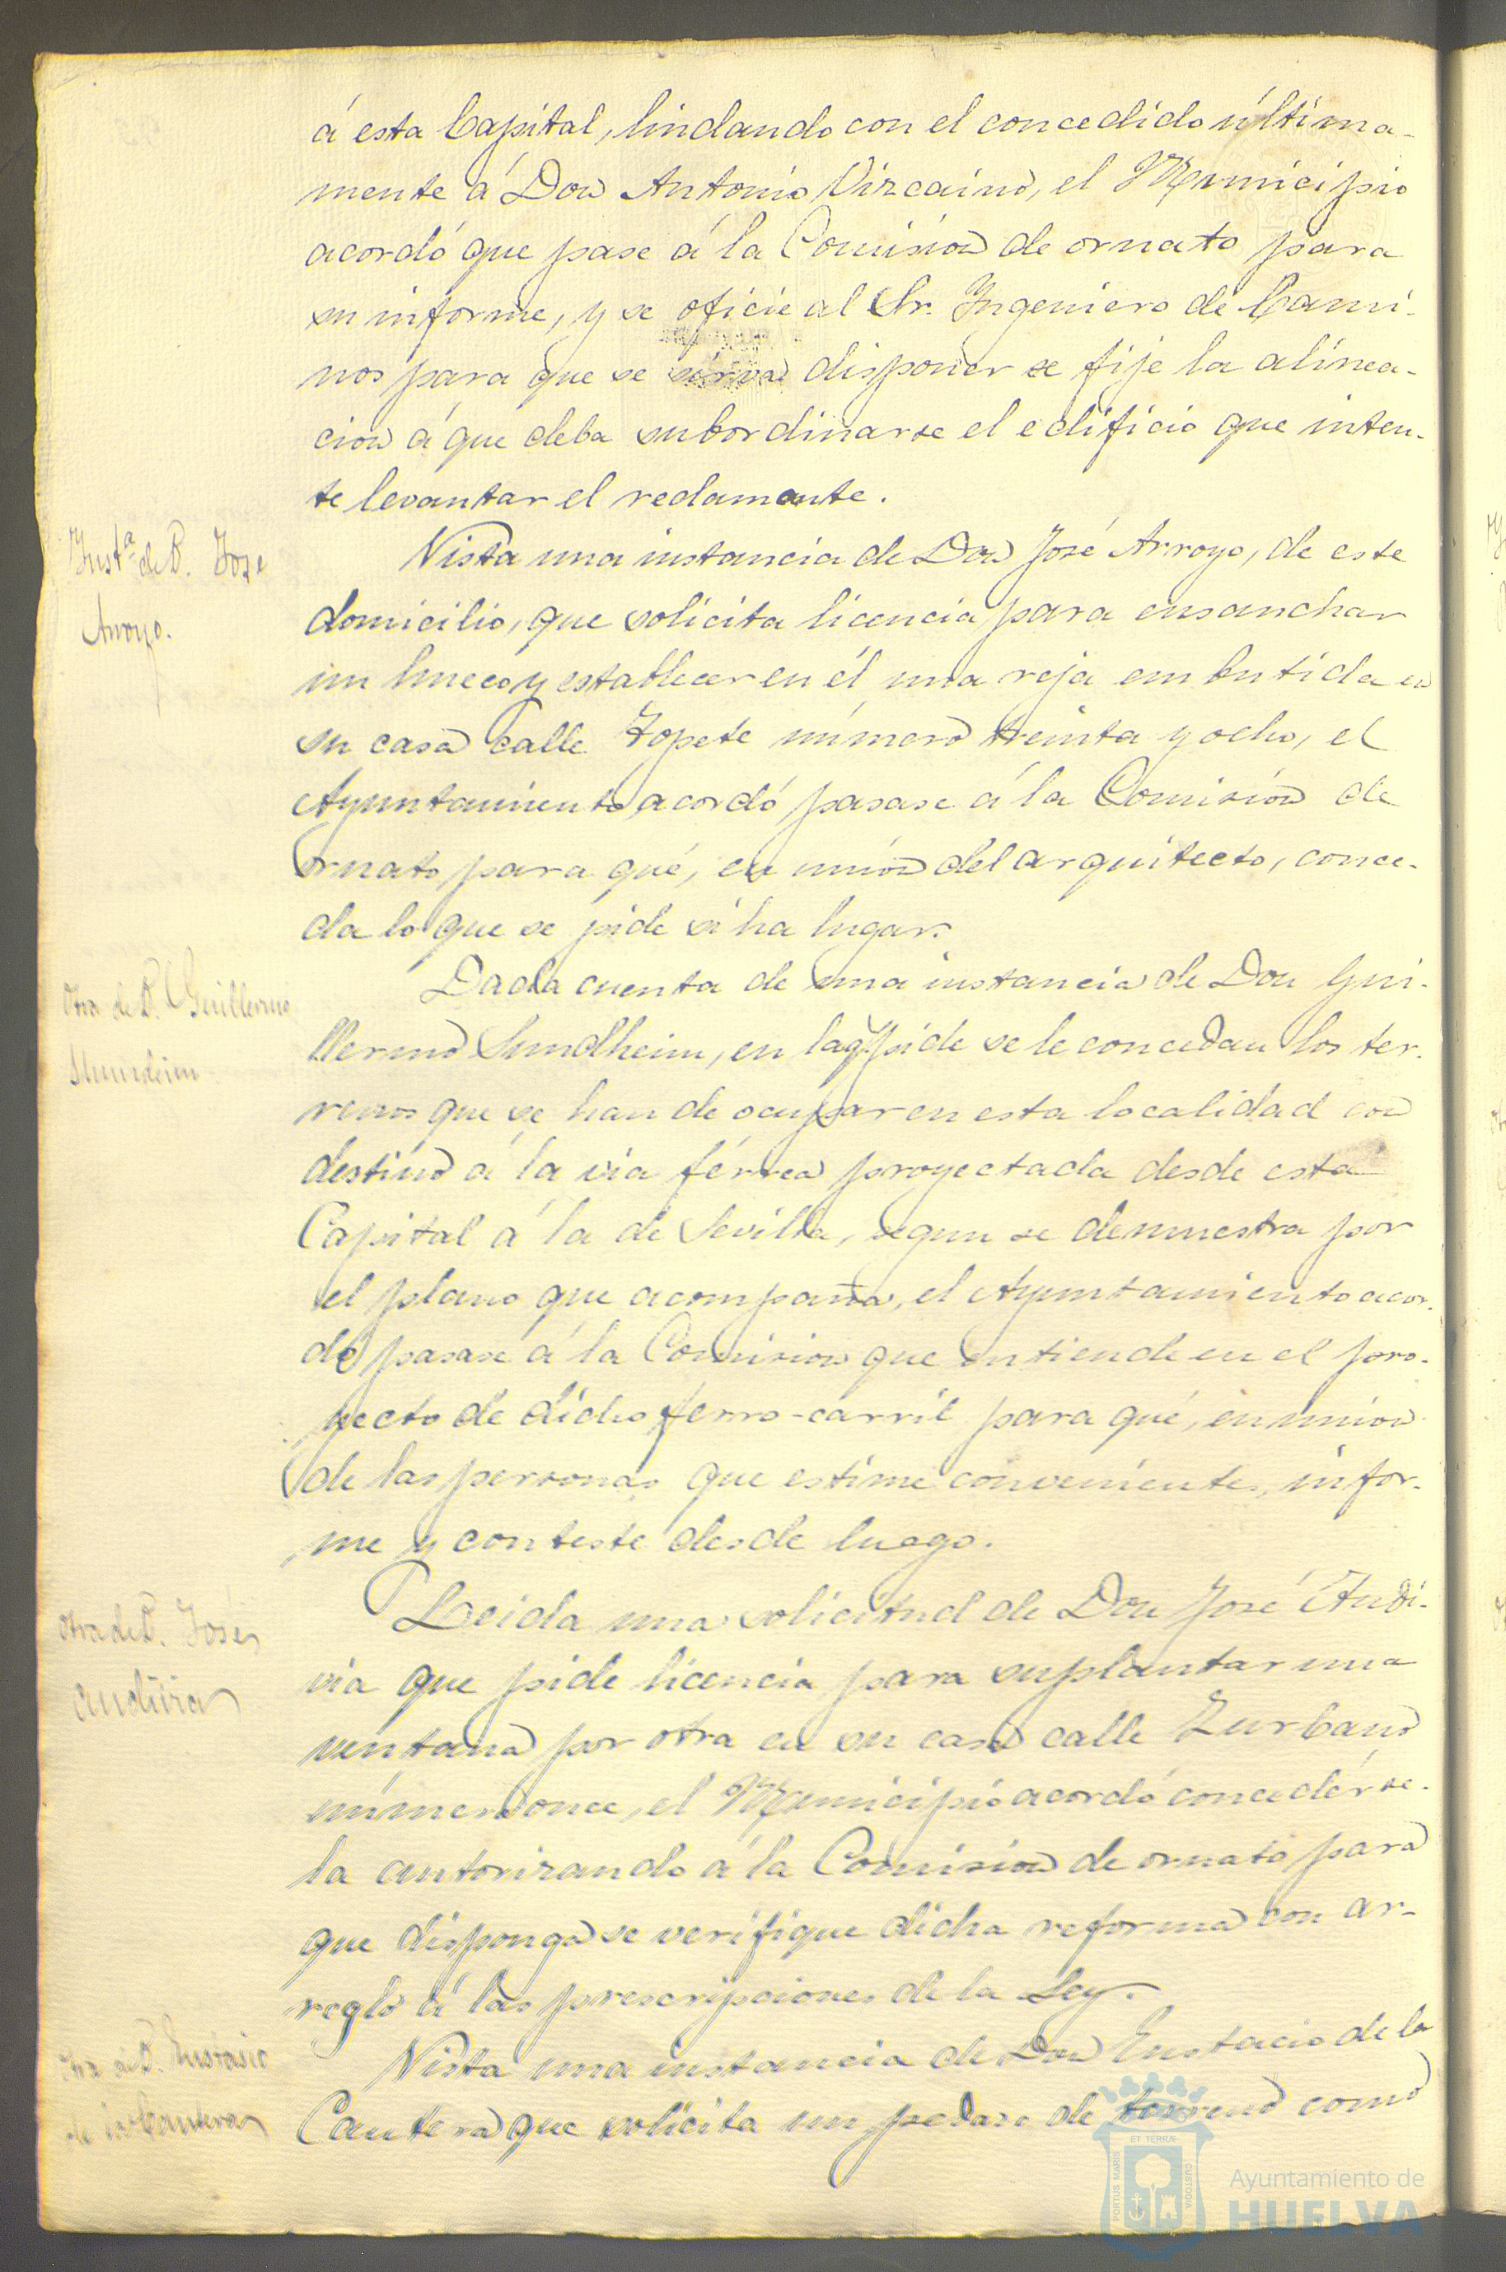 á esta Capital, lindando con el concedido última-
mente á Don Antonio Vizcaino, el Municipio
acordó que pase á la Comision de ornato para
su informe, y se oficie al Sr. Ingeniero de Cami-
nos para que se sirva disponer se fije la alinea-
cion á que deba subordinarse el edificio que inten-
te levantar el reclamante.
Inst.a de D. Jose
Arroyo.
Vista una instancia de Don José Arroyo, de este
domicilio, que solicita licencia para ensanchar
un hueco y establecer en él una reja embutida en
su casa calle Topete número treinta y ocho, el
Ayuntamiento acordó pasase á la Comision de
ornato para qué, en union del arquitecto, conce-
da lo que se pide si ha lugar.
Otra de D. Guillermo
Dada cuenta de una instancia de Don Gui-
llermo Sundheim, en la q.e pide se le concedan los ter-
renos que se han de ocupar en esta localidad con
destino á la via férrea proyectada desde esta
Capital á la de Sevilla, segun se demuestra por
el plano que acompaña, el Ayuntamiento acor-
dó pasase á la Comision que entiende en el pro-
yecto de dicho ferro-carril para qué, en union
de las personas que estime convenientes, infor-
me y conteste desde luego.
Otra de D. José
Andivia
Leida una solicitud de Don José Andi-
via que pide licencia para suplantar una
ventana por otra en su casa calle Zurbano
número once, el Municipio acordó concedérse-
la autorizando á la Comision de ornato para
que disponga se verifique dicha reforma con ar-
reglo á las prescripciones de la Ley.
Otra de D. Eustasio
de la Cantera
Vista una instancia de Don Eustacio de la
Cantera que solicita un pedaso de terreno como
PORTUS MARIS
ET TERRÆ
CUSTODIA
Ayuntamiento de
HUELVA